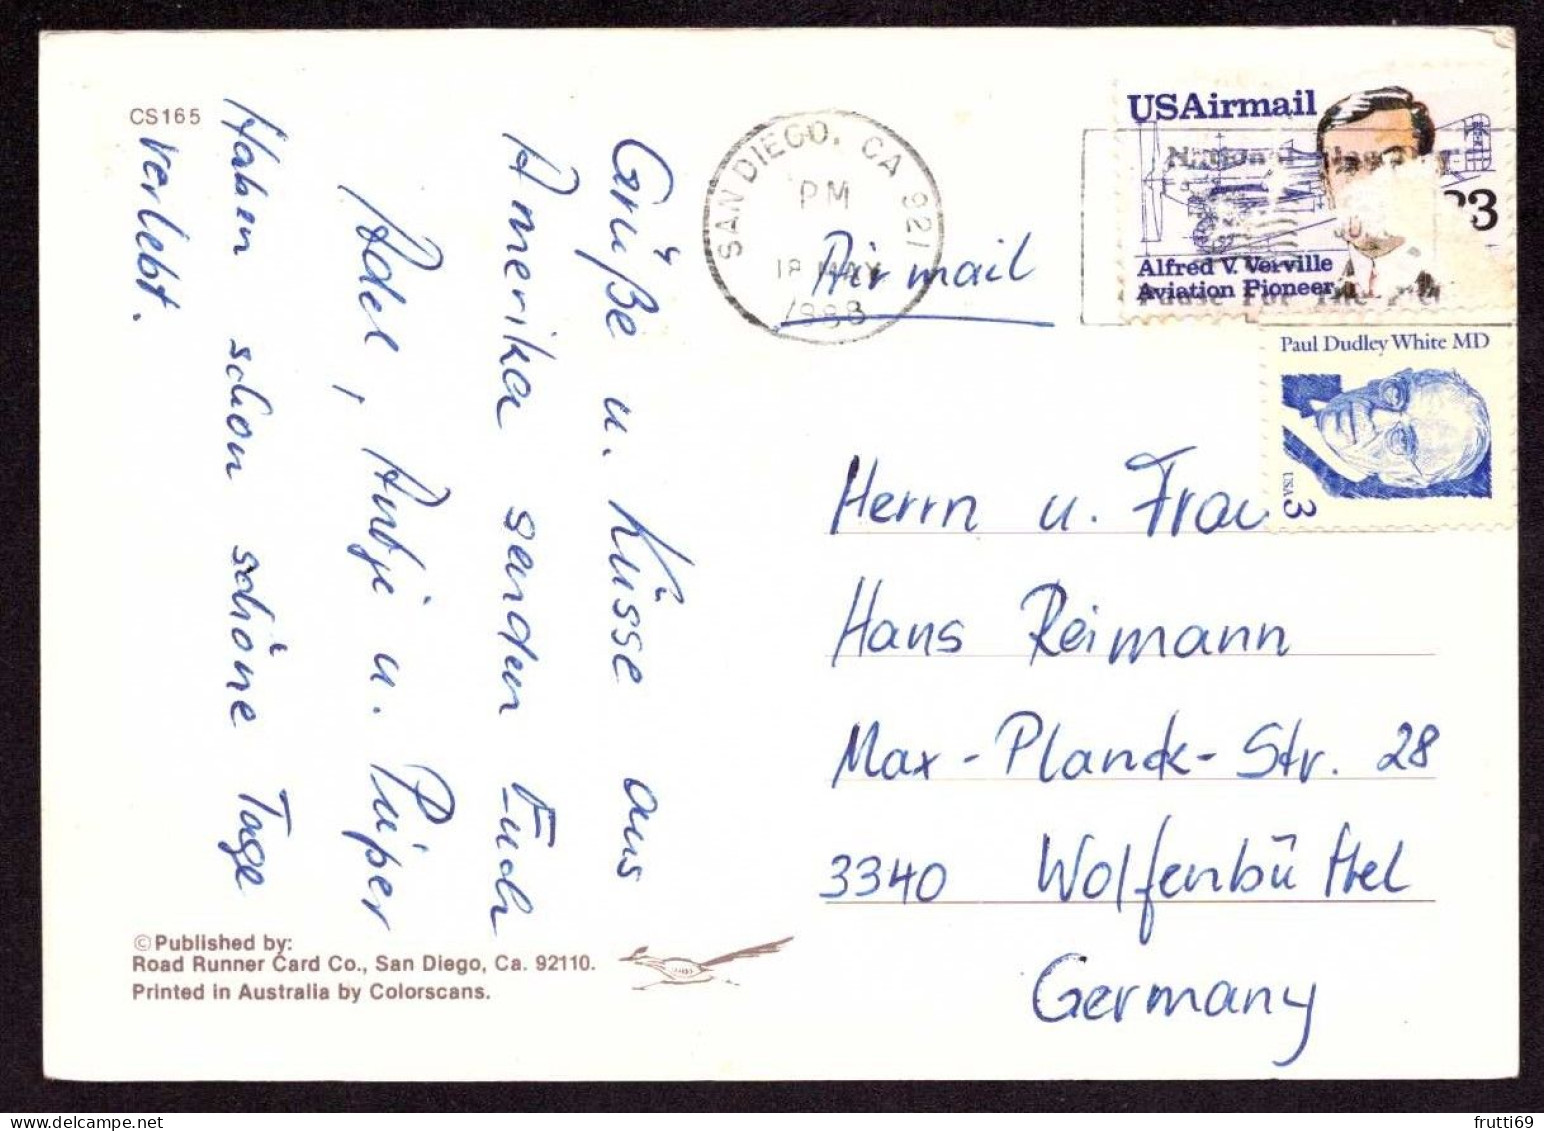 CS165
Grüße u. Küsse aus
Amerika senden Euch
Adel, Antje u. Püper
Haben schon schöne Tage
verlebt.
©Published by:
Road Runner Card Co., San Diego, Ca. 92110.
Printed in Australia by Colorscans.
SAN DIEGO, CA 921
PM
18 MAY
1988
Air mail
USAirmail
Alfred V. Verville
Aviation Pioneer
Paul Dudley White MD
USA 3
Herrn u. Frau
Hans Reimann
Max-Planck-Str. 28
3340 Wolfenbüttel
Germany
frutti69